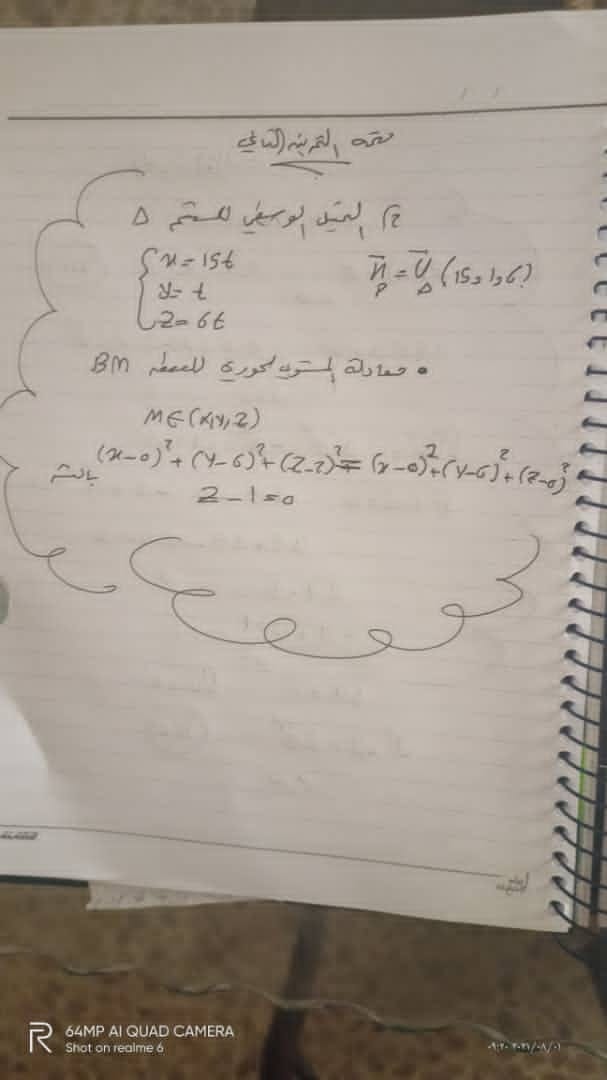 تتمة التمرين الثاني
2) التمثيل الوسيطي للمستقيم Δ
{ x = 15t
y = t
z = 6t
n⃗_P = u⃗_Δ (15, 1, 6)
• معادلة المستوي المحوري للقطعة BM
M ∈ (x, y, z)
(x-0)² + (y-6)² + (z-2)² = (x-0)² + (y-6)² + (z-0)²
z - 1 = 0
64MP AI QUAD CAMERA
Shot on realme 6